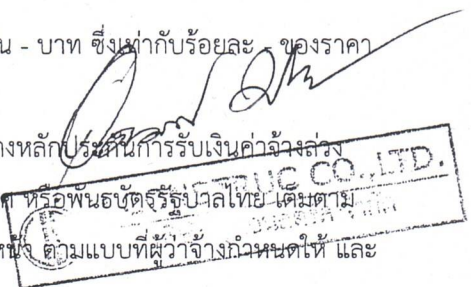 น - บาท ซึ่งเท่ากับร้อยละ - ของราคา
างหลักประกันการรับเงินค่าจ้างล่วง
หรือพันธบัตรรัฐบาลไทย เต็มตาม
CO.,LTD.
ตามแบบที่ผู้ว่าจ้างกำหนดให้ และ